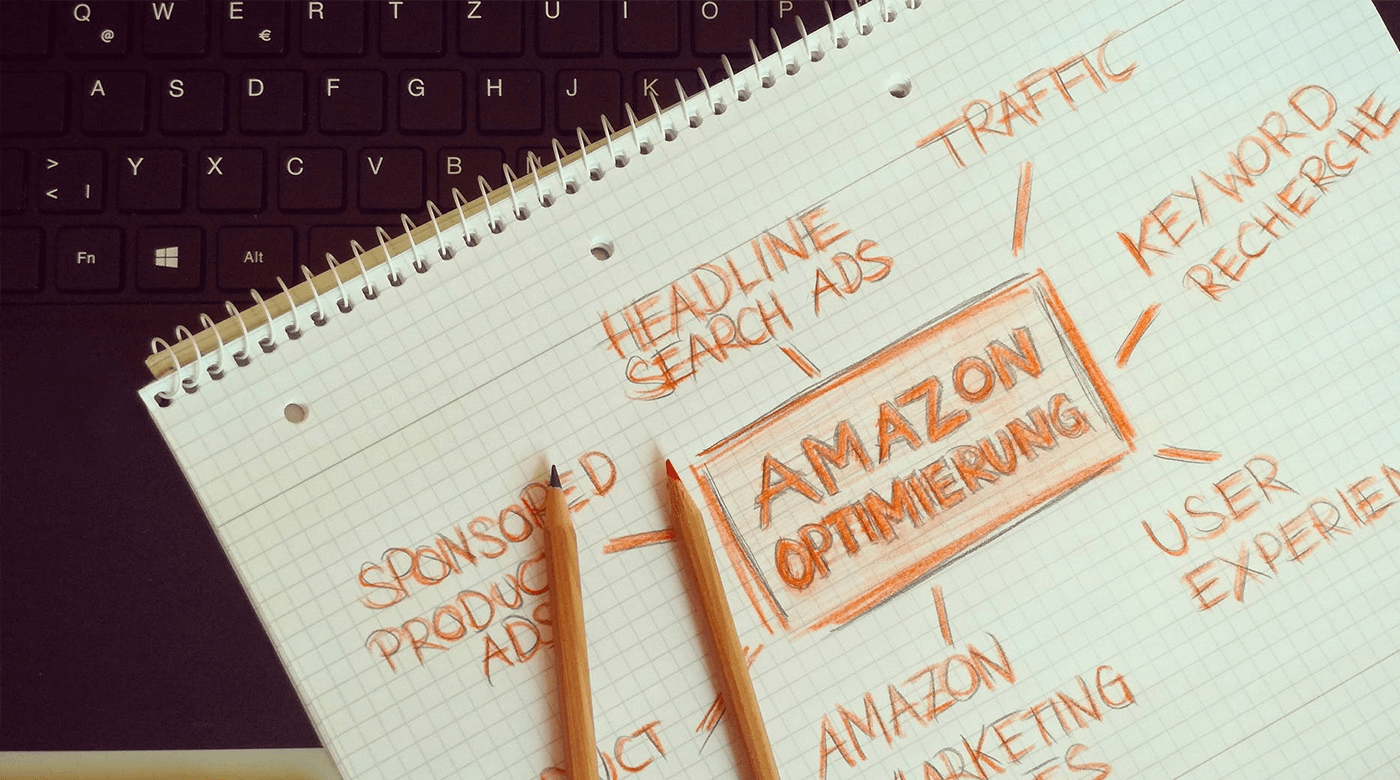 Q W E R T Z U I O P
@ €
A S D F G H J K
>
< |
Y X C V B
Fn Alt
TRAFFIC
KEYWORD
RECHERCHE
HEADLINE
SEARCH ADS
AMAZON
OPTIMIERUNG
SPONSORED
PRODUCT
ADS
USER
AMAZON